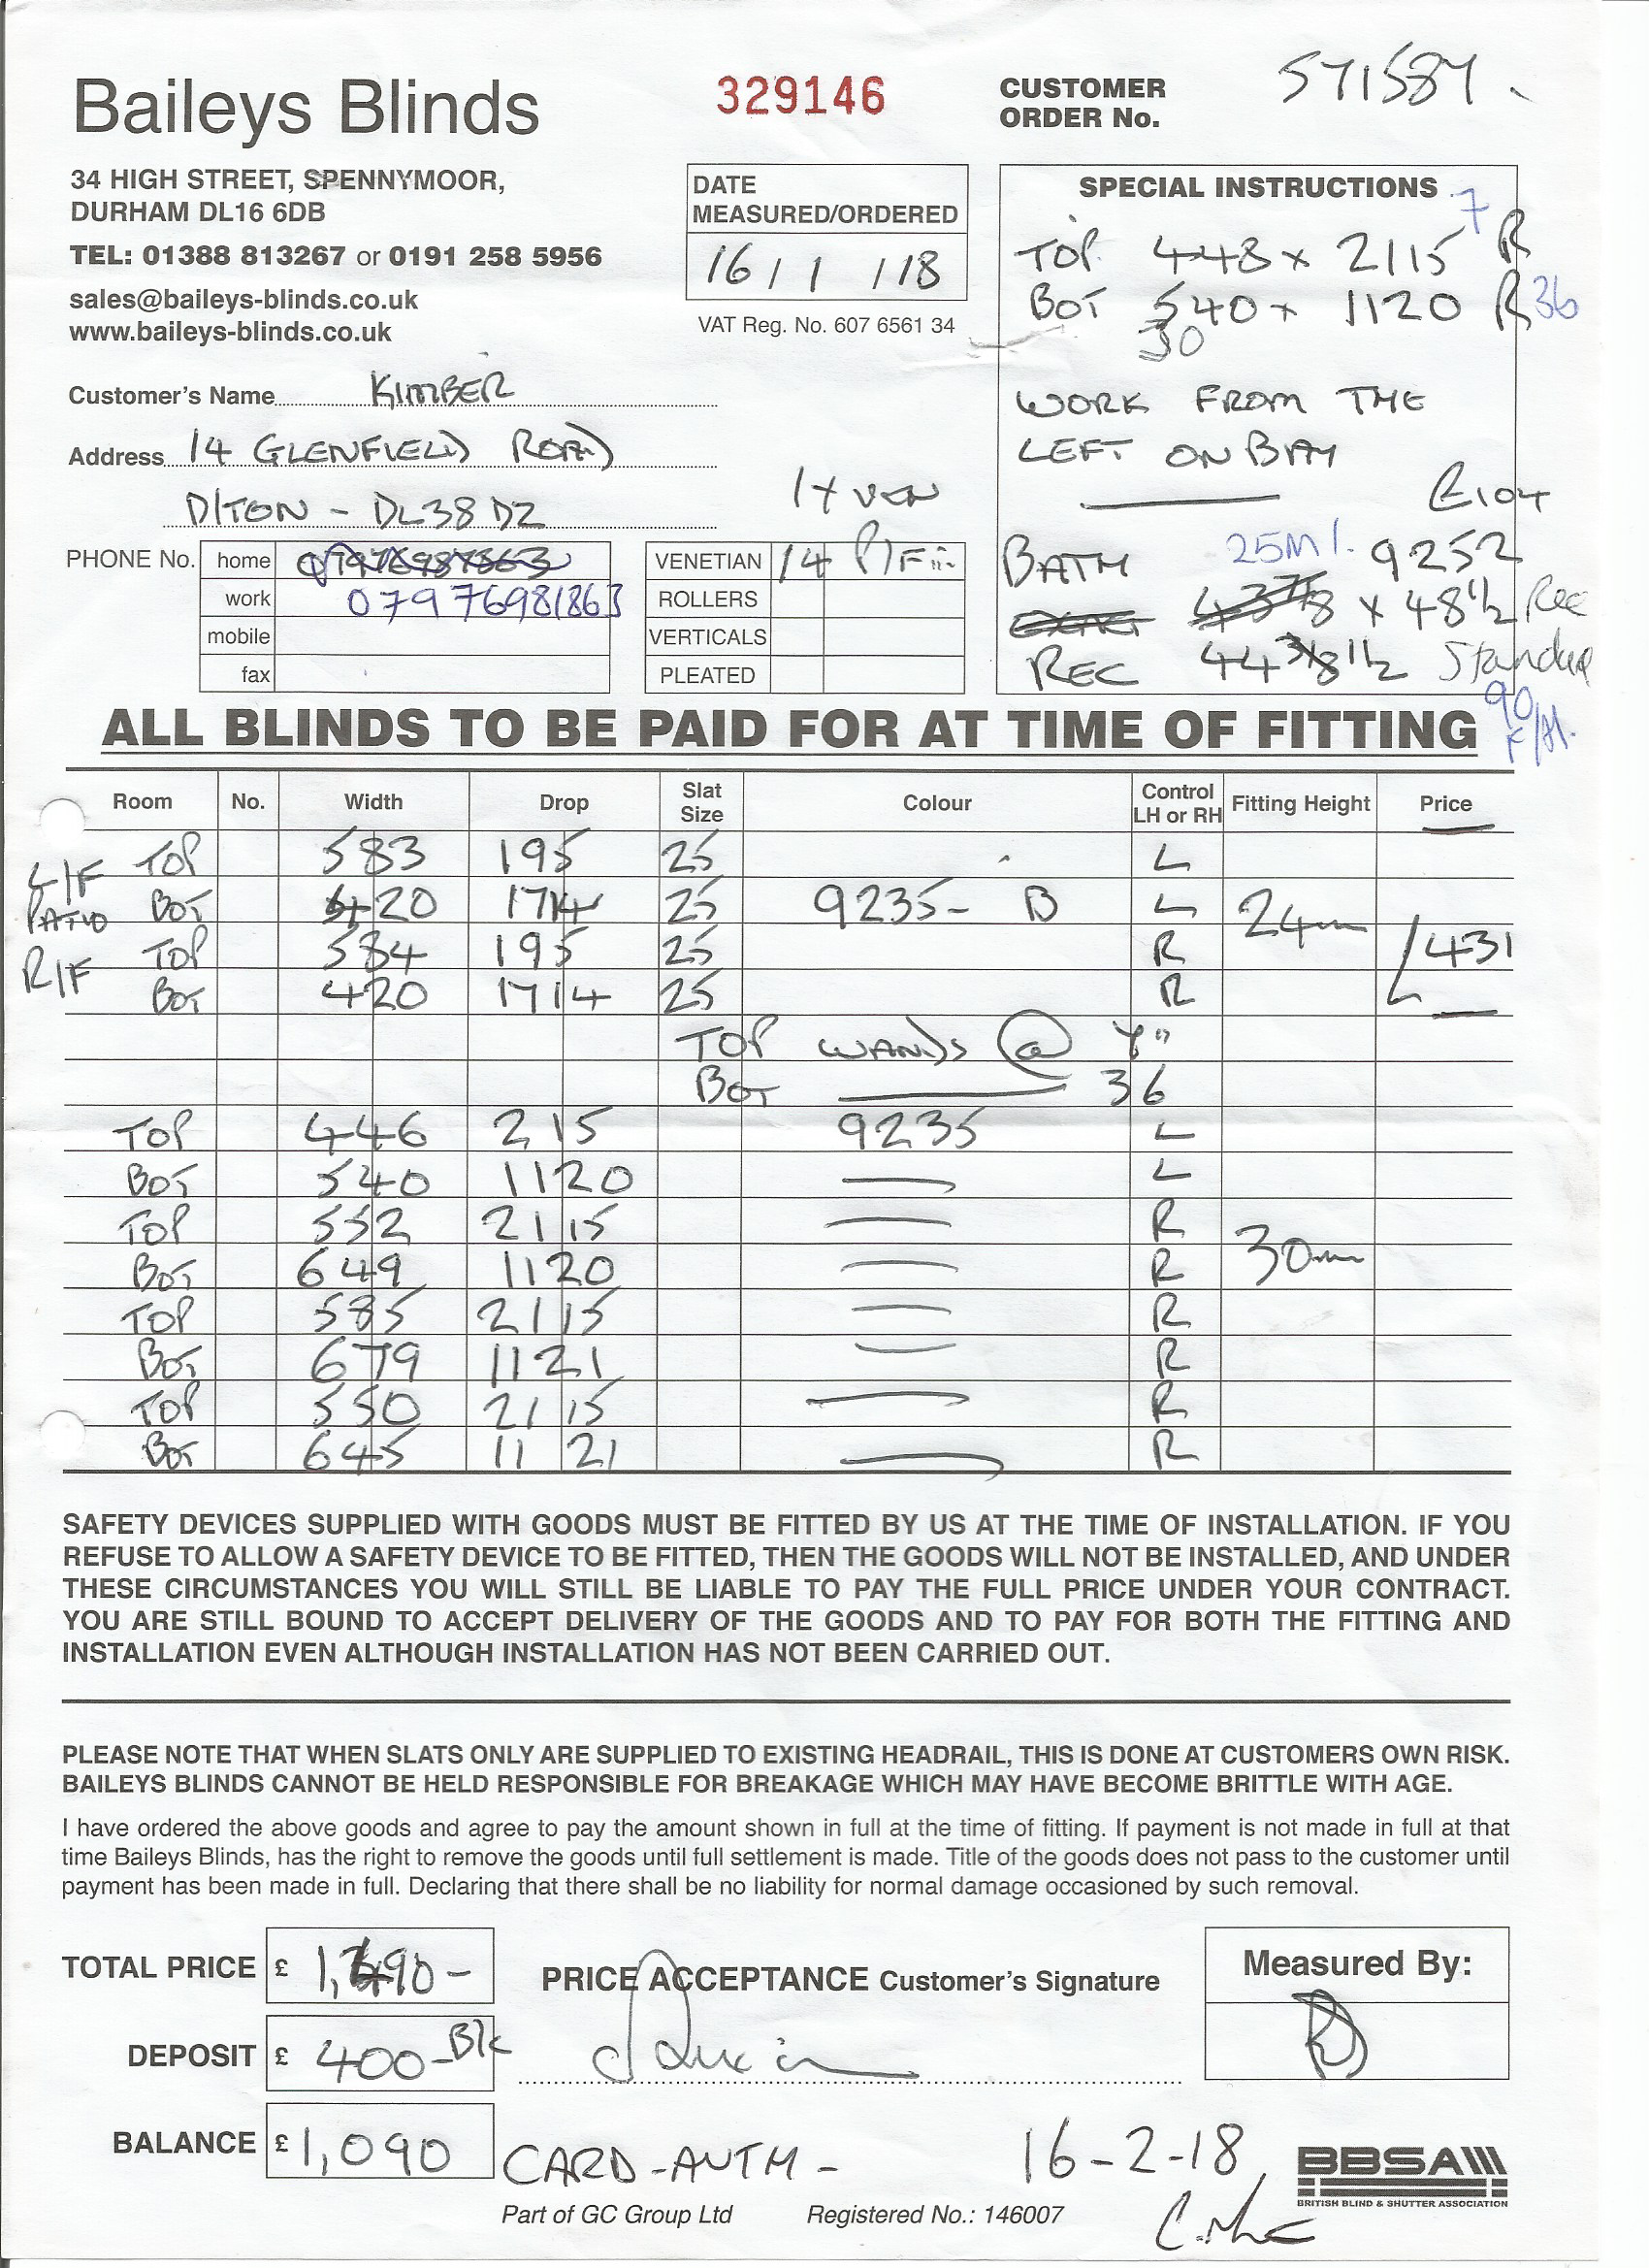 Baileys Blinds
329146
CUSTOMER
ORDER No.
571587.
34 HIGH STREET, SPENNYMOOR,
DURHAM DL16 6DB
TEL: 01388 813267 or 0191 258 5956
sales@baileys-blinds.co.uk
www.baileys-blinds.co.uk
DATE
MEASURED/ORDERED
16/1/18
VAT Reg. No. 607 6561 34
SPECIAL INSTRUCTIONS
7
TOP 448 x 2115 R
BOT 540 x 1120 R 36
30
WORK FROM THE
LEFT ON BAY
£104
BATH 25Ml. 9252
x 48 1/2 Rec
REC 44 1/2 Standed
90
Customer's Name KIMBER
Address 14 GLENFIELD ROAD
D/TON - DL38DZ
1 x VEN
PHONE No. home
work 07976981863
mobile
fax
VENETIAN 14 P/Fi:
ROLLERS
VERTICALS
PLEATED
ALL BLINDS TO BE PAID FOR AT TIME OF FITTING
Room No. Width Drop Slat Size Colour Control LH or RH Fitting Height Price
L/F TOP 583 195 25 L
PATIO BOT 420 1714 25 9235- B L 24mm
R/F TOP 584 195 25 R 431
BOT 420 1714 25 R
TOP WANDS @ 4"
BOT 36
TOP 446 215 9235 L
BOT 540 1120 L
TOP 552 2115 R
BOT 649 1120 R 30mm
TOP 585 2115 R
BOT 679 1121 R
TOP 550 2115 R
BOT 645 1121 R
SAFETY DEVICES SUPPLIED WITH GOODS MUST BE FITTED BY US AT THE TIME OF INSTALLATION. IF YOU
REFUSE TO ALLOW A SAFETY DEVICE TO BE FITTED, THEN THE GOODS WILL NOT BE INSTALLED, AND UNDER
THESE CIRCUMSTANCES YOU WILL STILL BE LIABLE TO PAY THE FULL PRICE UNDER YOUR CONTRACT.
YOU ARE STILL BOUND TO ACCEPT DELIVERY OF THE GOODS AND TO PAY FOR BOTH THE FITTING AND
INSTALLATION EVEN ALTHOUGH INSTALLATION HAS NOT BEEN CARRIED OUT.
PLEASE NOTE THAT WHEN SLATS ONLY ARE SUPPLIED TO EXISTING HEADRAIL, THIS IS DONE AT CUSTOMERS OWN RISK.
BAILEYS BLINDS CANNOT BE HELD RESPONSIBLE FOR BREAKAGE WHICH MAY HAVE BECOME BRITTLE WITH AGE.
I have ordered the above goods and agree to pay the amount shown in full at the time of fitting. If payment is not made in full at that
time Baileys Blinds, has the right to remove the goods until full settlement is made. Title of the goods does not pass to the customer until
payment has been made in full. Declaring that there shall be no liability for normal damage occasioned by such removal.
TOTAL PRICE £ 1,490-
PRICE ACCEPTANCE Customer's Signature
Measured By:
DEPOSIT £ 400- Blc
BALANCE £ 1,090
CARD-AUTH-
16-2-18
BBSA
BRITISH BLIND & SHUTTER ASSOCIATION
Part of GC Group Ltd Registered No.: 146007